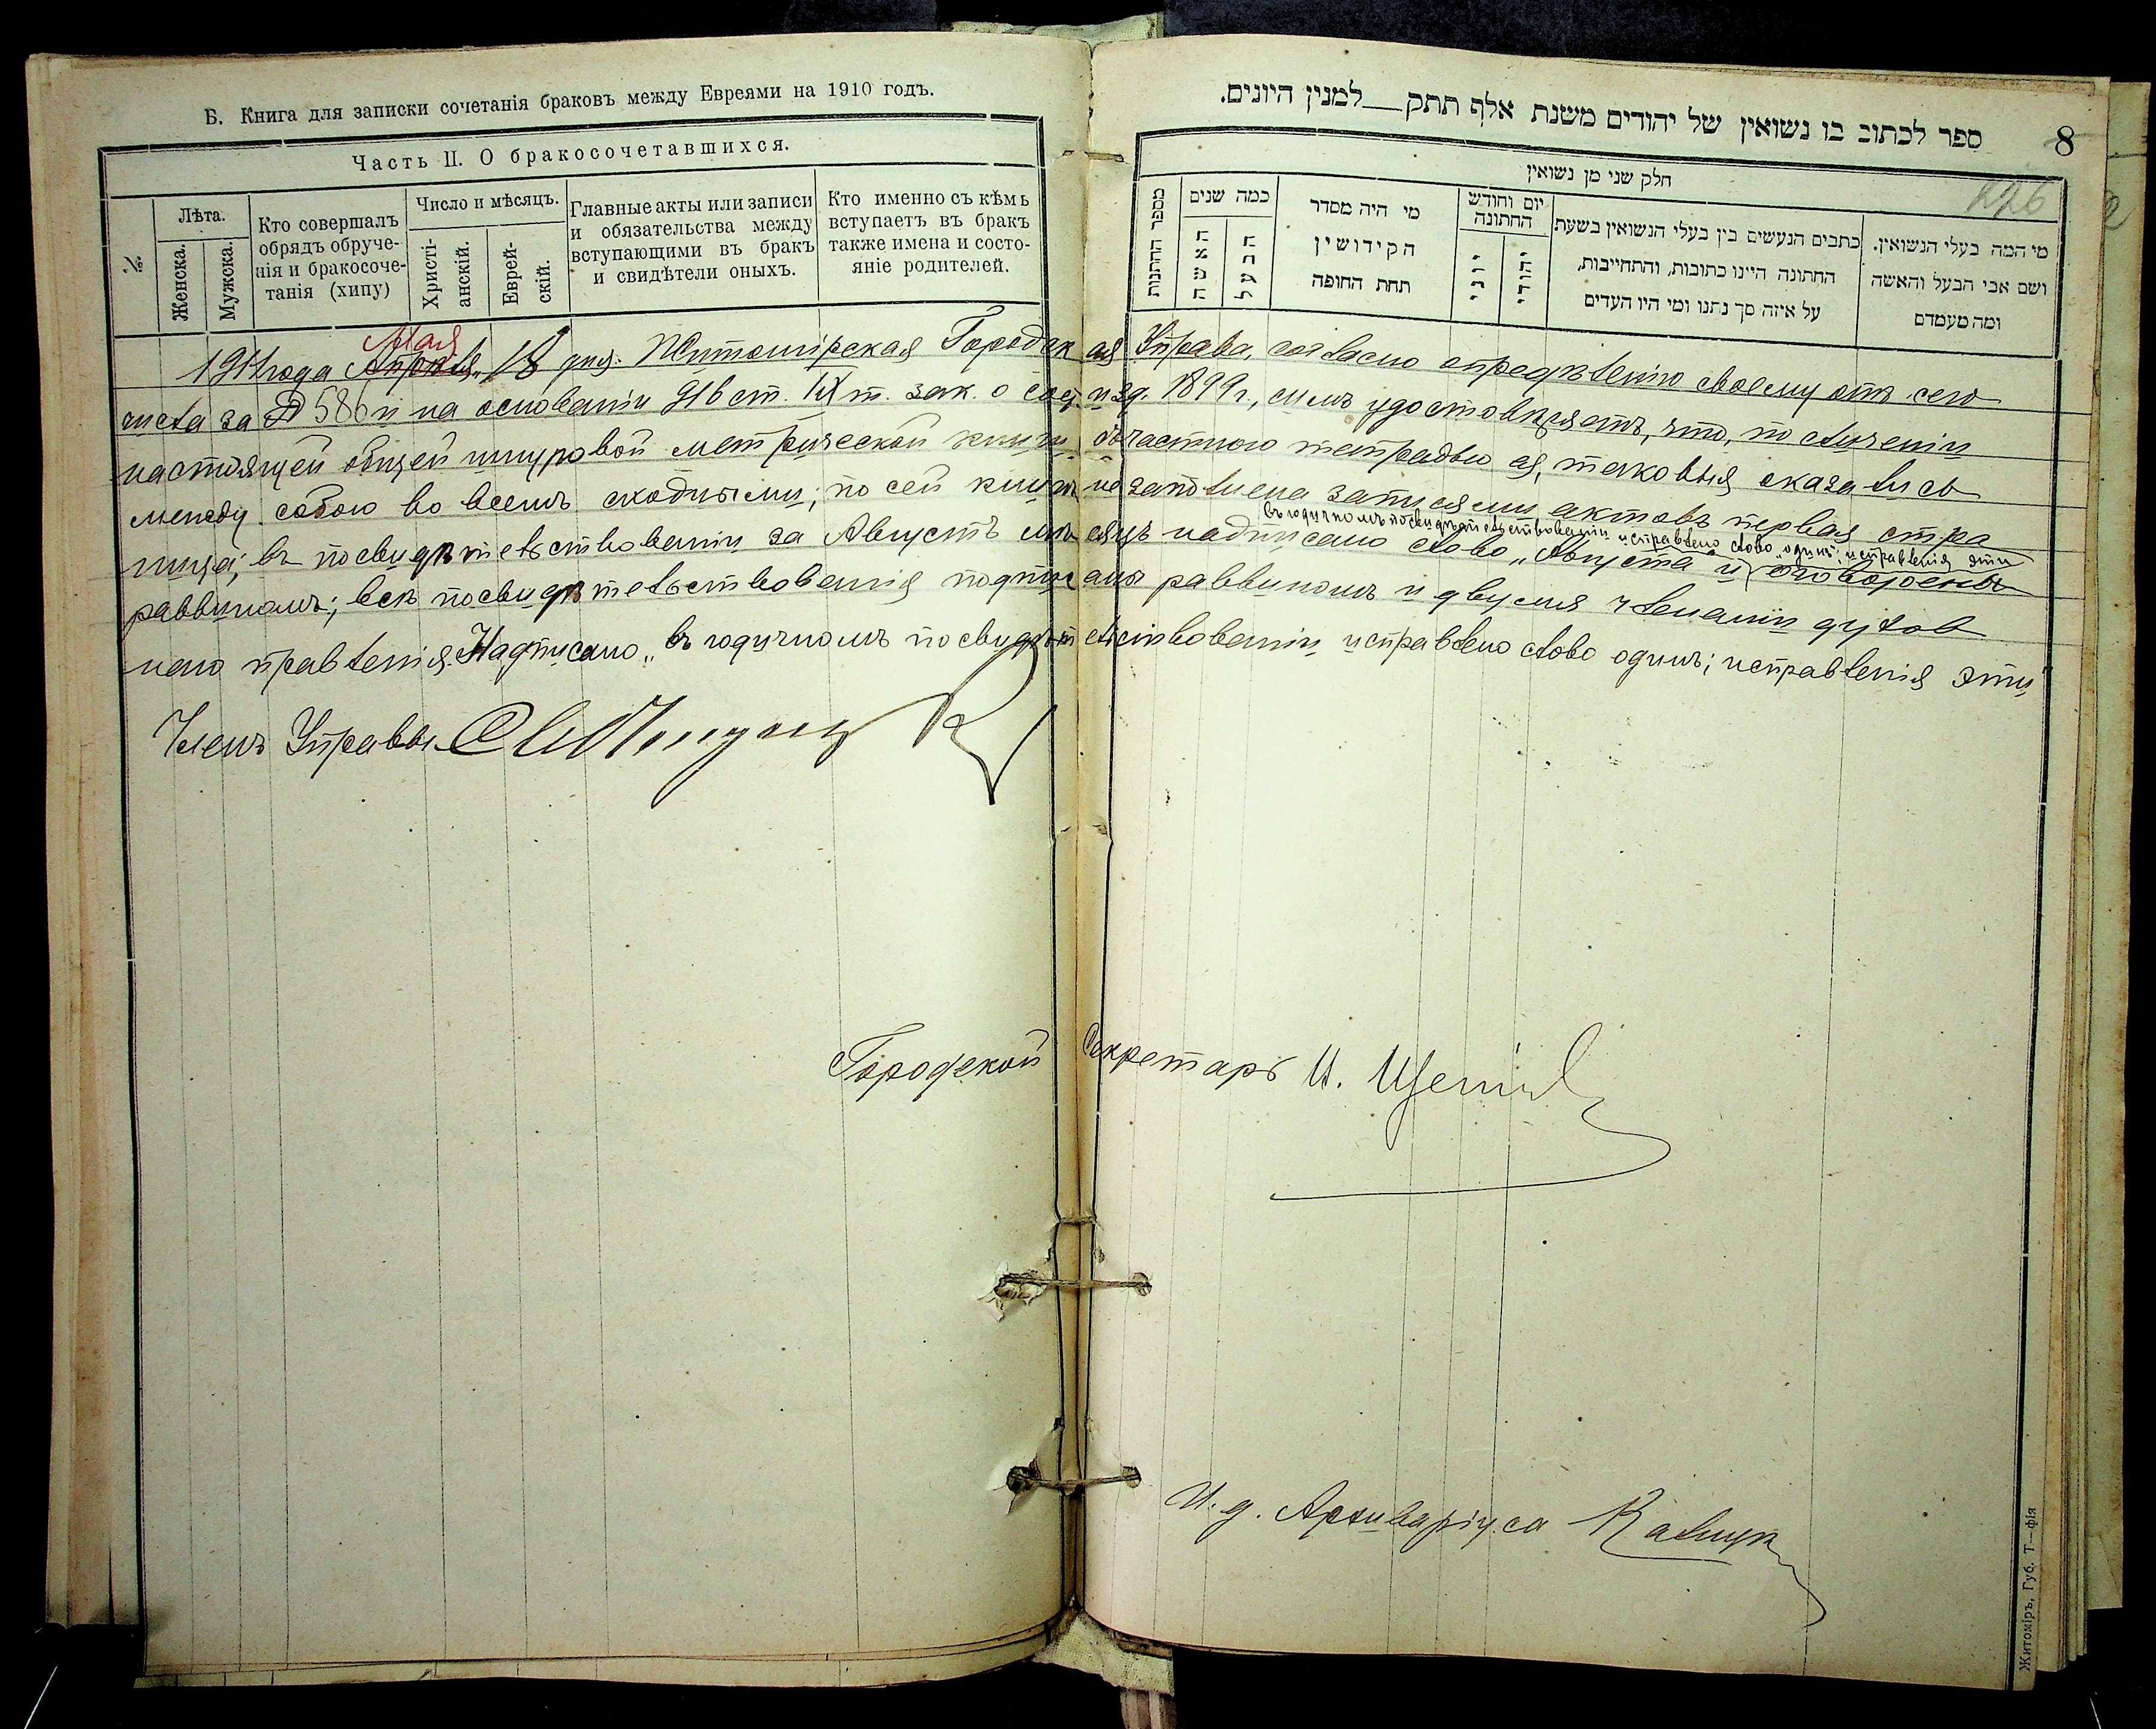 Б. Книга для записки сочетанія браковъ между Евреями на 1910 годъ.
Часть II. О бракосочетавшихся.
№
Лѣта.
Женска.
Мужска.
Кто совершалъ
обрядъ обруче-
нія и бракосоче-
танія (хипу)
Число и мѣсяцъ.
Христі-
анскій.
Еврей-
скій.
Главные акты или записи
и обязательства между
вступающими въ бракъ
и свидѣтели оныхъ.
Кто именно съ кѣмъ
вступаетъ въ бракъ
также имена и состо-
яніе родителей.
ספר לכתוב בו נשואין של יהודים משנת אלף תתק — למנין היונים.
8
226
חלק שני מן נשואין
מספר החתנות
כמה שנים
האשה
הבעל
מי היה מסדר
הקידושין
תחת החופה
יום וחודש
החתונה
יוני
יהודי
כתבים הנעשים בין בעלי הנשואין בשעת
החתונה היינו כתובות, והתחייבות,
על איזה סך נתנו ומי היו העדים
מי המה בעלי הנשואין.
ושם אבי הבעל והאשה
ומה מעמדם
Мая
1911 года Апрѣля 18 дня. Житомірская Городская Управа, согласно опредѣленію своему отъ сего
числа за № 586 и на основаніи 916 ст. IX т. зак. о сост. изд. 1899 г., симъ удостовѣряетъ, что, по сличеніи
настоящей общей шнуровой метрической книги, съ частною тетрадью ея, таковыя оказались
между собою во всемъ сходными; по сей книгѣ не заполнена записями актовъ первая стра
въ годичномъ посвидѣтельствованіи исправлено слово „одинъ"; исправленія эти
ница; въ посвидѣтельствованіи за Августъ мѣсяцъ надписано слово „Августа" и оговорены
раввиномъ; всѣ посвидѣтельствованія подписаны раввиномъ и двумя членами духов
наго правленія. Надписано „въ годичномъ посвидѣтельствованіи исправлено слово одинъ; исправленія эти"
Членъ Управы
Городской Секретарь И.
И. д. Архиваріуса
Житоміръ, Губ. Т—фія